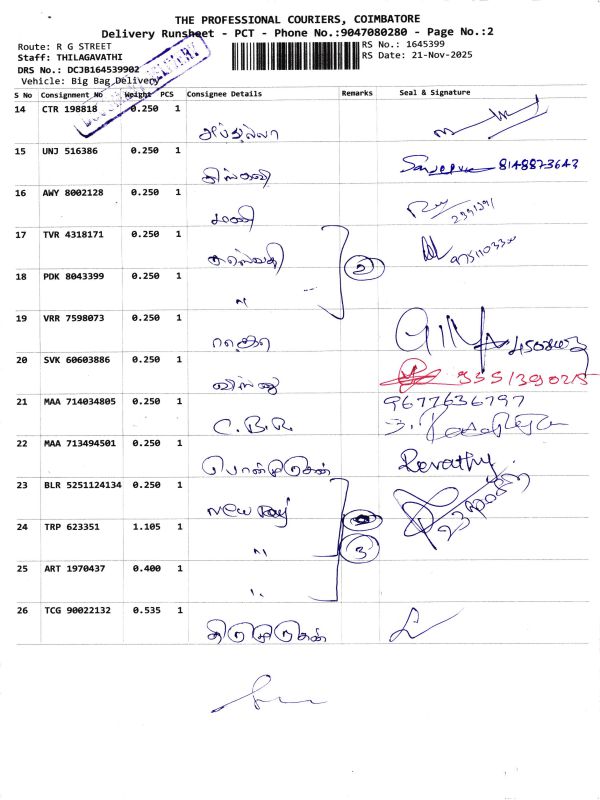 THE PROFESSIONAL COURIERS, COIMBATORE
Delivery Runsheet - PCT - Phone No.:9047080280 - Page No.:2
Route: R G STREET
RS No.: 1645399
Staff: THILAGAVATHI
RS Date: 21-Nov-2025
DRS No.: DCJB164539902
Vehicle: Big Bag Delivery
S No Consignment No Weight PCS Consignee Details Remarks Seal & Signature
14 CTR 198818 0.250 1
15 UNJ 516386 0.250 1
8148873643
16 AWY 8002128 0.250 1
மணி
17 TVR 4318171 0.250 1
2
18 PDK 8043399 0.250 1
"
19 VRR 7598073 0.250 1
20 SVK 60603886 0.250 1
விஸ்ணு
21 MAA 714034805 0.250 1
C.B.R
9677636797
22 MAA 713494501 0.250 1
பொன்முருகன்
Revathy.
23 BLR 5251124134 0.250 1
New Raj
24 TRP 623351 1.105 1
"
3
25 ART 1970437 0.400 1
"
26 TCG 90022132 0.535 1
திருமுருகன்